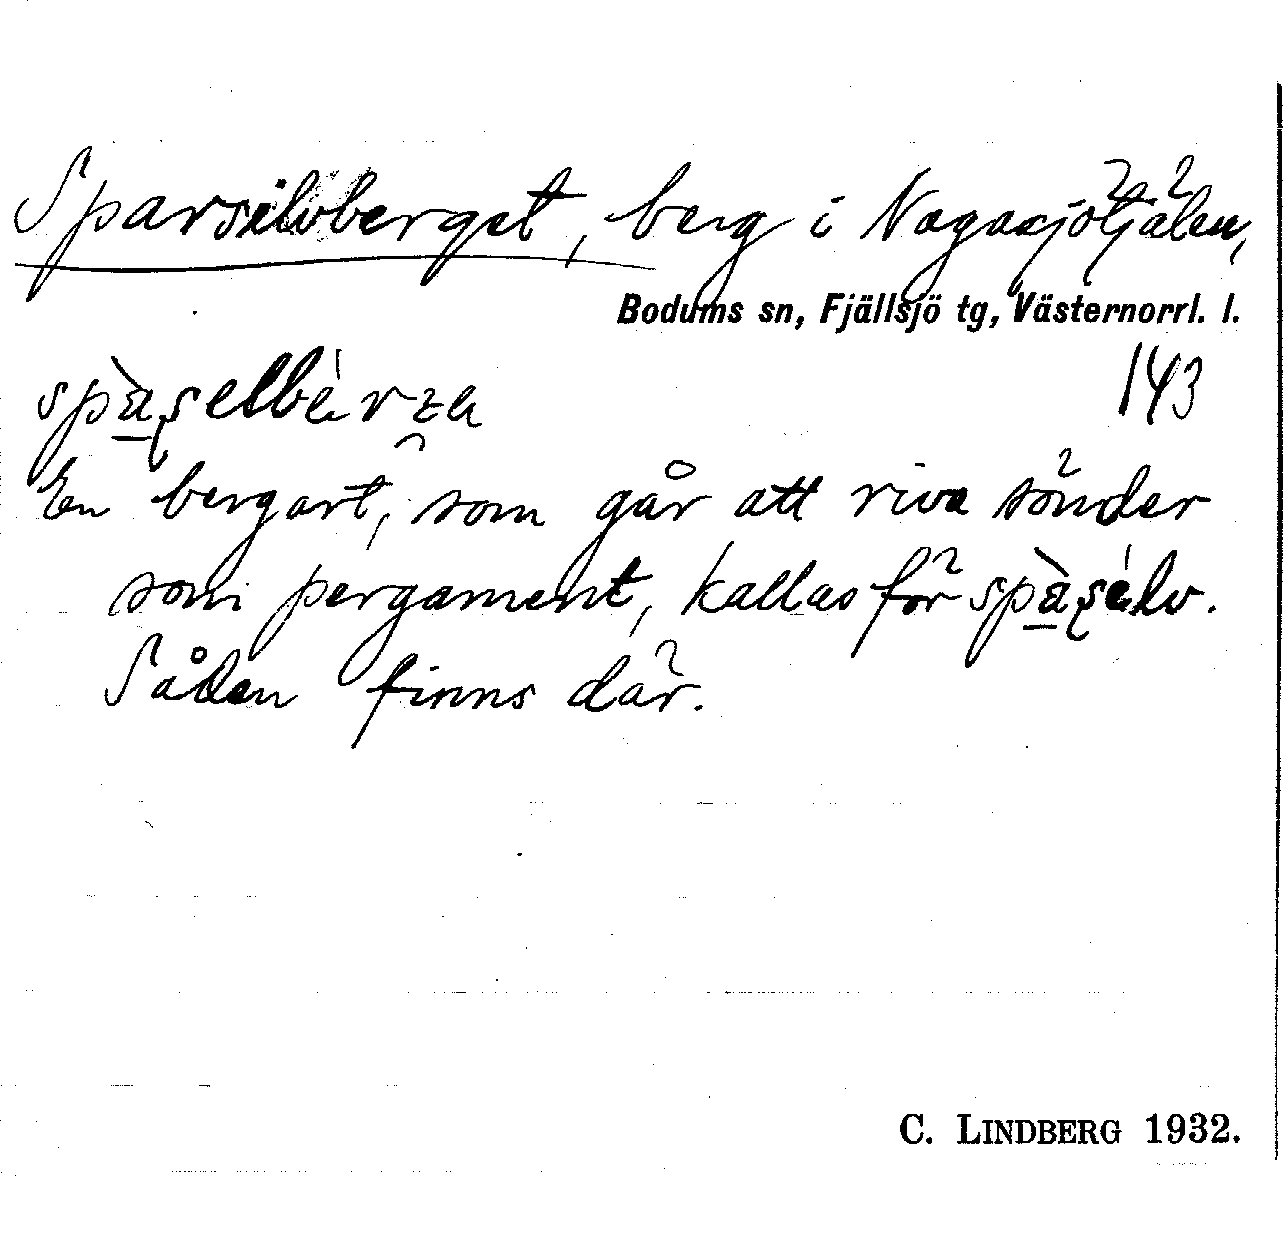 Sparsilvberget, berg i Nagasjötjälen,
Bodums sn, Fjällsjö tg, Västernorrl. l.
143
En bergart, som går att riva sönder
som pergament, kallas för
Såden finns där.
C. LINDBERG 1932.